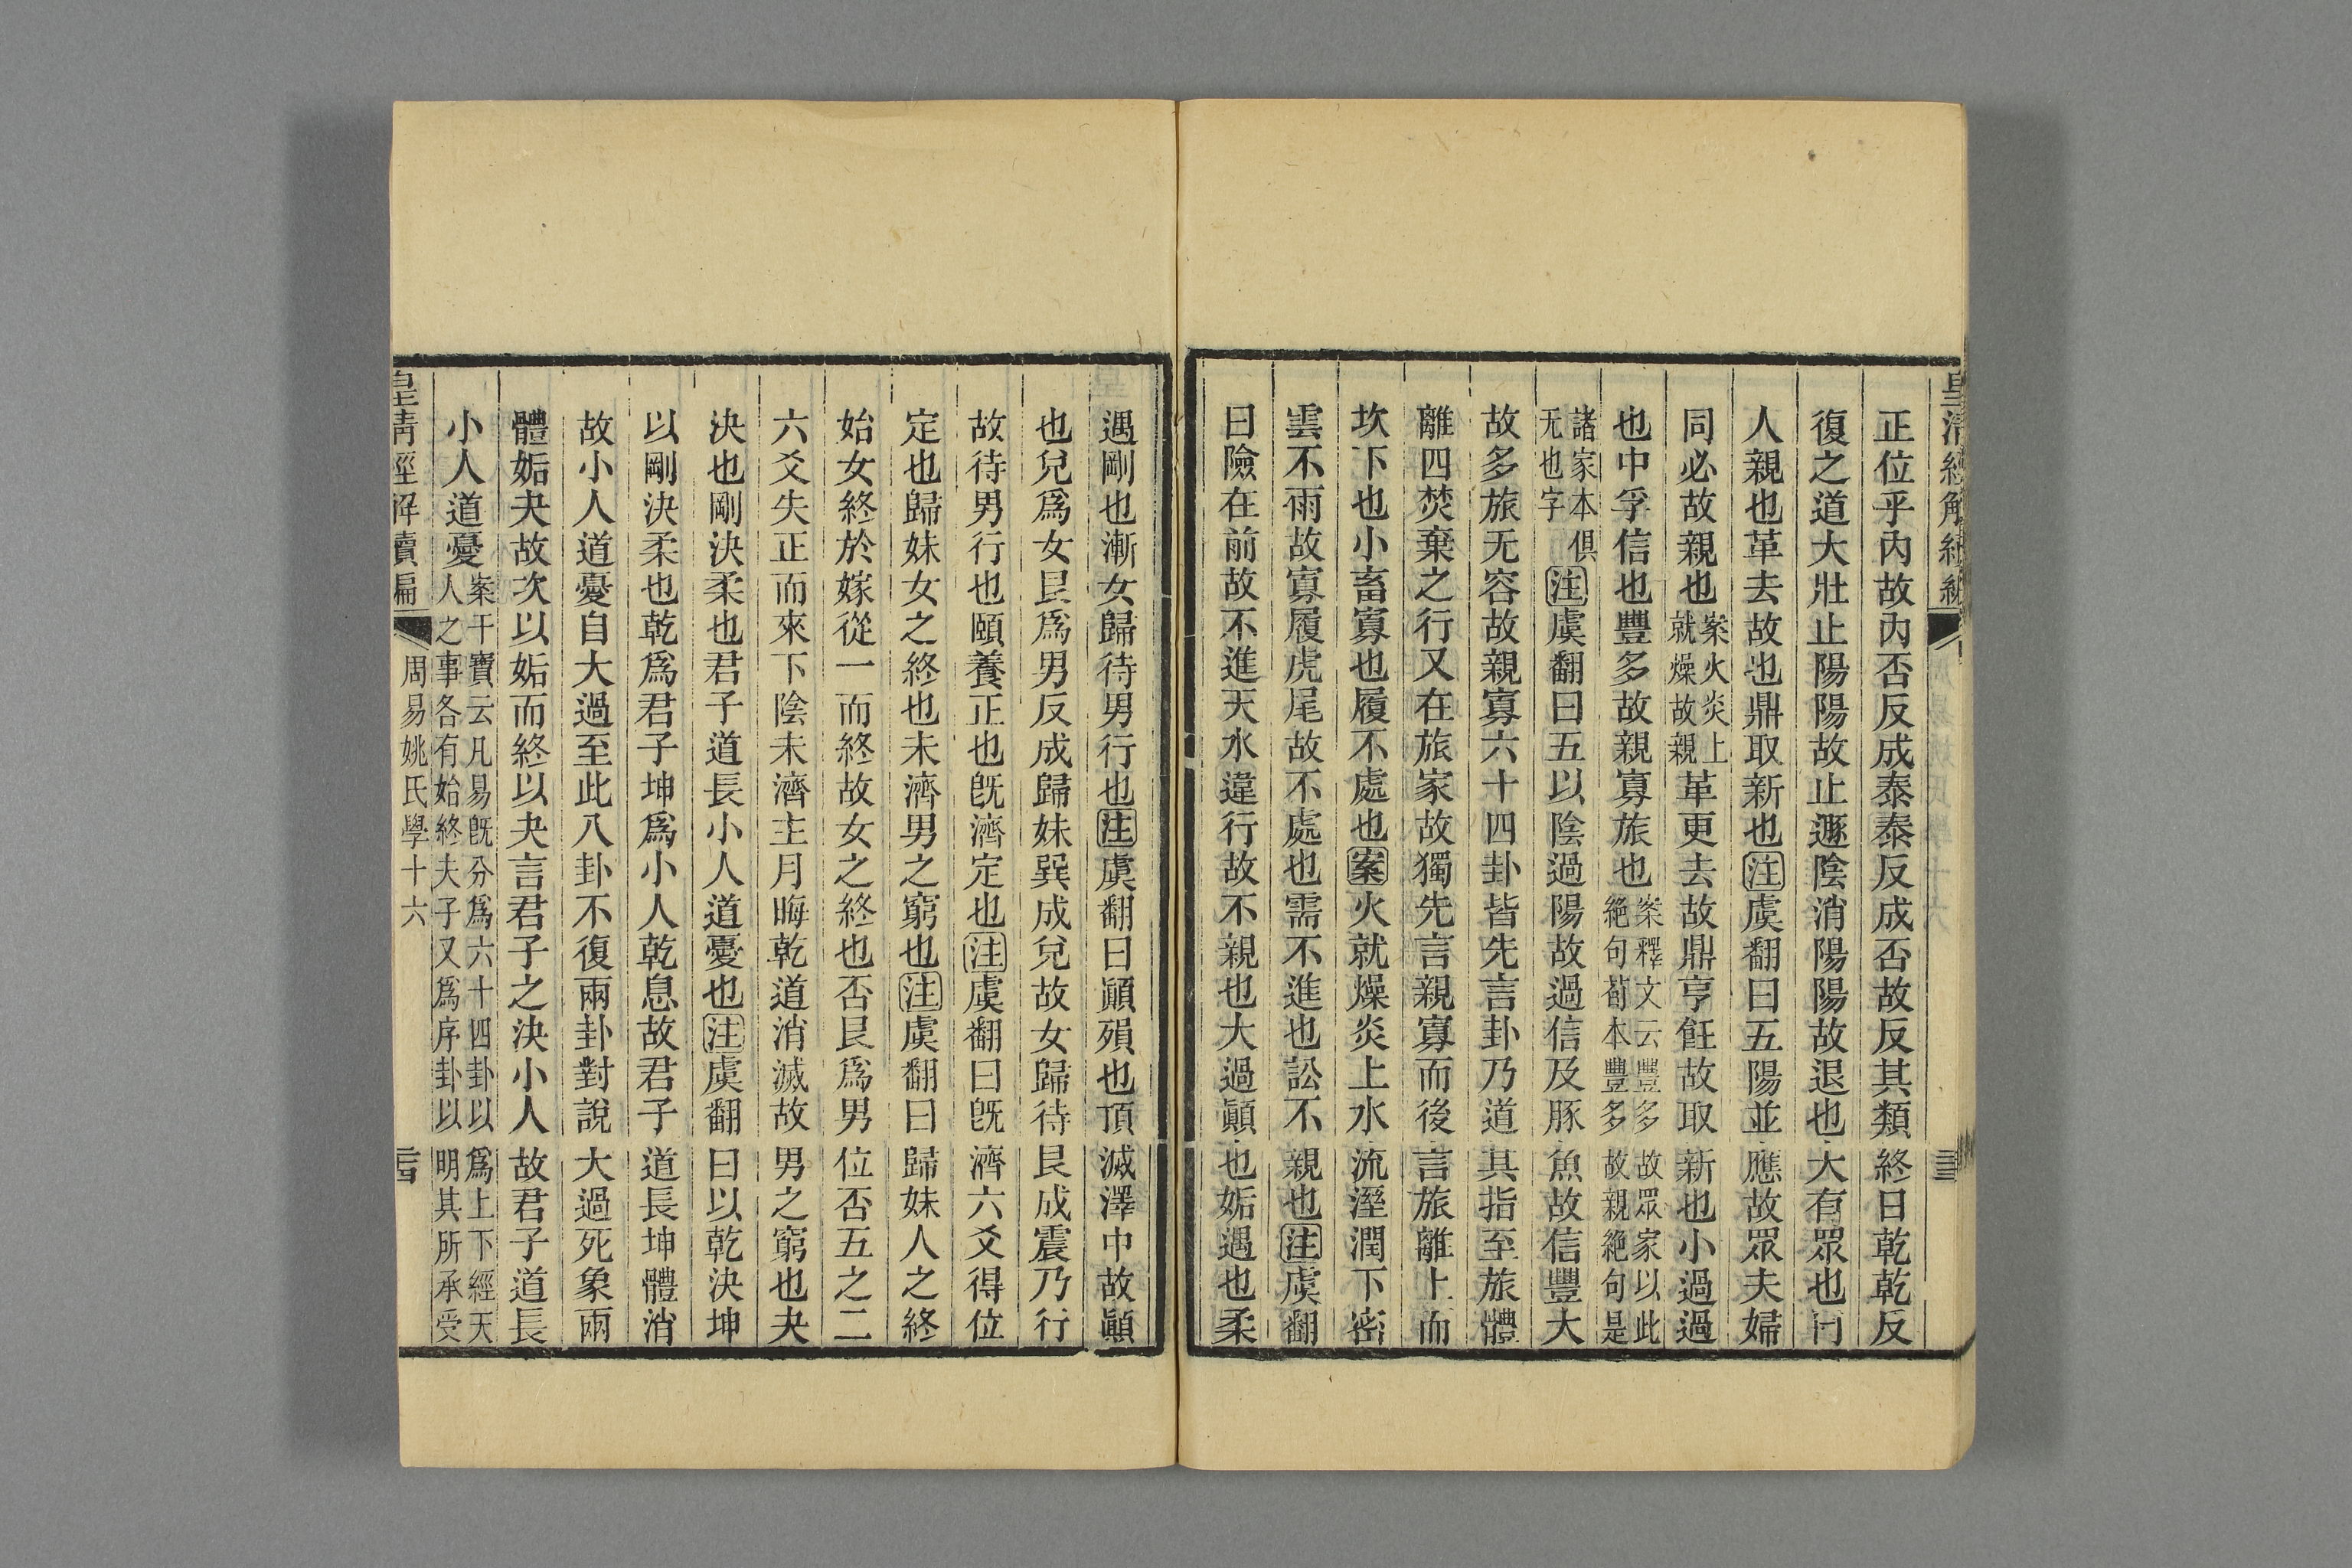 正位乎內故內否反成泰泰反成否故反其類終日乾乾反
復之道大壯止陽陽故止遯陰消陽陽故退也大有眾也同
人親也革去故也鼎取新也注虞翻曰五陽並應故眾夫婦
同必故親也案火炎上就燥故親革更去故鼎亨飪故取新也小過過
也中孚信也豐多故親寡旅也案釋文云豐多故眾家以此絶句荀本豐多故親絶句是
諸家本俱无也字注虞翻曰五以陰過陽故過信及豚魚故信豐大
故多旅无容故親寡六十四卦皆先言卦乃道其指至旅體
離四焚棄之行又在旅家故獨先言親寡而後言旅離上而
坎下也小畜寡也履不處也案火就燥炎上水流溼潤下密
雲不雨故寡履虎尾故不處也需不進也訟不親也注虞翻
曰險在前故不進天水違行故不親也大過顚也姤遇也柔
遇剛也漸女歸待男行也注虞翻曰顚殞也頂滅澤中故顚
也兌爲女艮爲男反成歸妹巽成兌故女歸待艮成震乃行
故待男行也頤養正也旣濟定也注虞翻曰旣濟六爻得位
定也歸妹女之終也未濟男之窮也注虞翻曰歸妹人之終
始女終於嫁從一而終故女之終也否艮爲男位否五之二
六爻失正而來下陰未濟主月晦乾道消滅故男之窮也夬
決也剛決柔也君子道長小人道憂也注虞翻曰以乾決坤
以剛決柔也乾爲君子坤爲小人乾息故君子道長坤體消
故小人道憂自大過至此八卦不復兩卦對說大過死象兩
體姤夬故次以姤而終以夬言君子之決小人故君子道長
小人道憂案干寶云凡易旣分爲六十四卦以爲上下經天人之事各有始終夫子又爲序卦以明其所承受
皇清經解續編
周易姚氏學十六